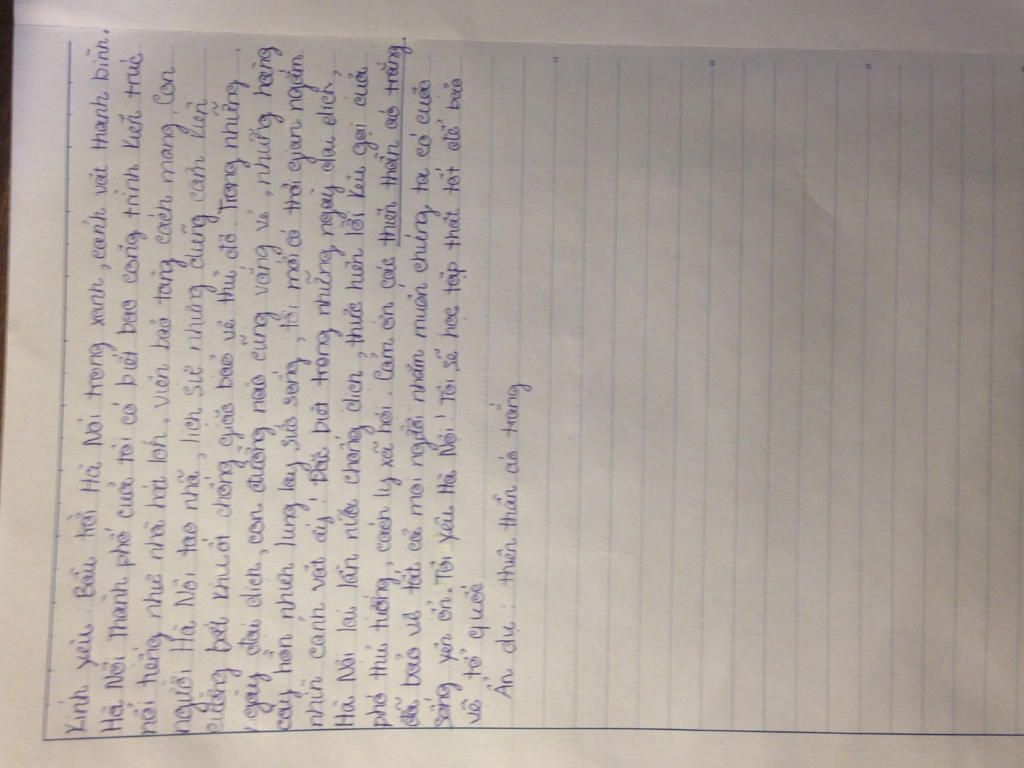 kính yêu. Bầu trời Hà Nội trong xanh, cảnh vật thanh bình.
Hà Nội Thành phố của tôi có biết bao công trình kiến trúc
nổi tiếng như nhà hát lớn, viện bảo tàng cách mạng. Con
người Hà Nội tao nhã, lịch sử nhưng dũng cảm kiên
cường bất khuất chống giặc bảo vệ thủ đô. Trong những
ngày đại dịch, con đường nào cũng vắng vẻ, những hàng
cây hồn nhiên lung lay sức sống, tôi mới có thời gian ngắm
nhìn cảnh vật ấy! Đặc biệt trong những ngày đại dịch,
Hà Nội lại lần nữa chống dịch, thực hiện lời kêu gọi của
phó thủ tướng, cách ly xã hội. Cảm ơn các thiên thần áo trắng
đã bảo vệ tất cả mọi người nhân muôn chúng ta có cuộc
sống yên ổn. Tôi yêu Hà Nội! Tôi sẽ học tập thật tốt để bảo
vệ tổ quốc
Ẩn dụ: thiên thần áo trắng